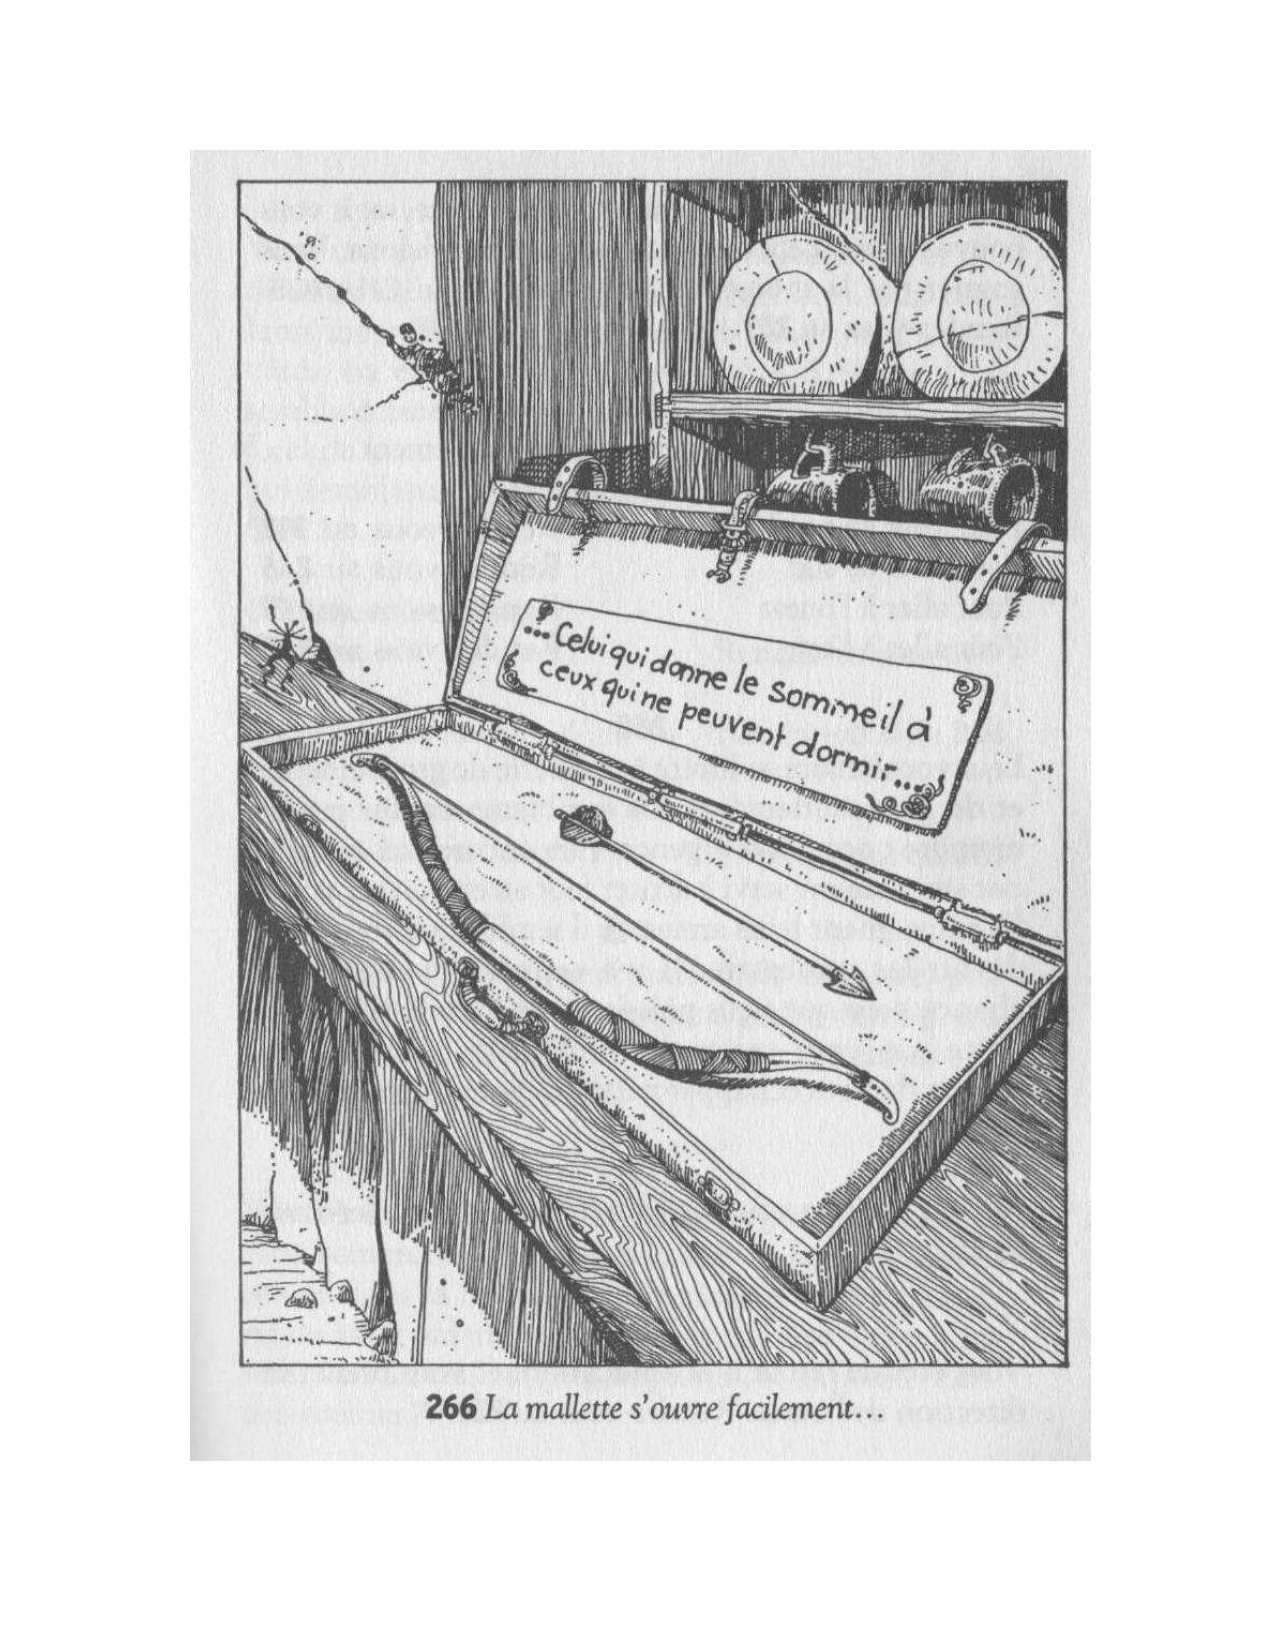 ...Celui qui donne le sommeil à
ceux qui ne peuvent dormir...
266 La mallette s'ouvre facilement...